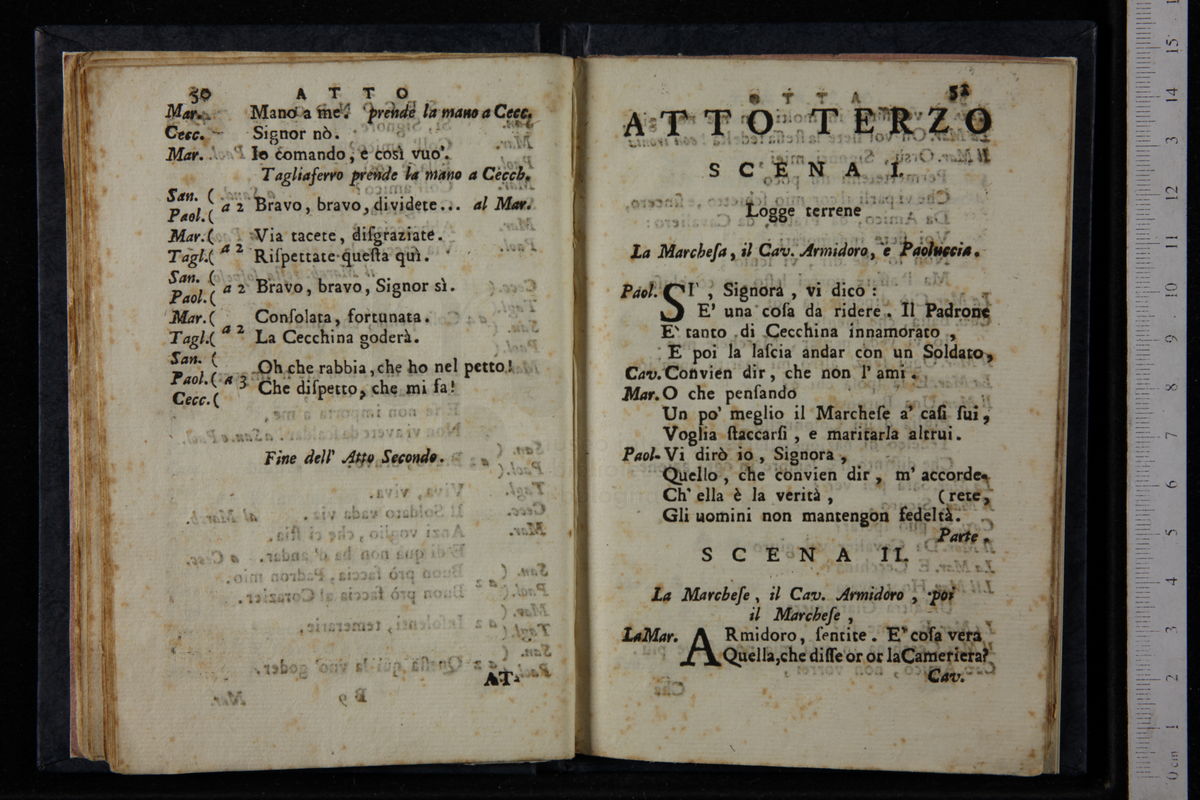 50 ATTO
Mar. Mano a me. prende la mano a Cecc.
Cecc. Signor nò.
Mar. Io comando, e così vuo'.
Tagliaferro prende la mano a Cecch.
San. (
Paol. ( a 2 Bravo, bravo, dividete... al Mar.
Mar. ( a 2 Via tacete, disgraziate.
Tagl. ( Rispettate questa quì.
San. (
Paol. ( a 2 Bravo, bravo, Signor sì.
Mar. ( a 2 Consolata, fortunata.
Tagl. ( La Cecchina goderà.
San. (
Paol. ( a 3 Oh che rabbia, che ho nel petto!
Cecc. ( Che dispetto, che mi fa!
Fine dell' Atto Secondo.
AT-
51
ATTO TERZO
SCENA I.
Logge terrene
La Marchesa, il Cav. Armidoro, e Paoluccia.
Paol. SI', Signora, vi dico:
E' una cosa da ridere. Il Padrone
E' tanto di Cecchina innamorato,
E poi la lascia andar con un Soldato,
Cav. Convien dir, che non l' ami.
Mar. O che pensando
Un po' meglio il Marchese a' casi sui,
Voglia staccarsi, e maritarla altrui.
Paol. Vi dirò io, Signora,
Quello, che convien dir, m' accorde-
Ch' ella è la verità, (rete,
Gli uomini non mantengon fedeltà.
Parte.
SCENA II.
La Marchese, il Cav. Armidoro, poi
il Marchese,
La Mar. ARmidoro, sentite. E' cosa vera
Quella, che disse or or la Cameriera?
Cav.